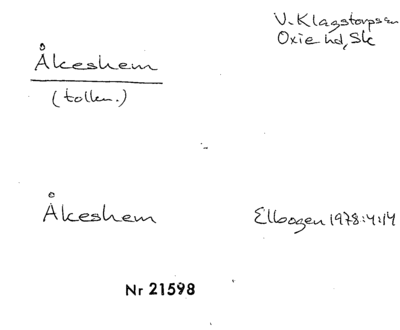 V. Klagstorps sn
Oxie hd, Sk
Åkeshem
(tolkn.)
Åkeshem
Elbogen 1978:4:14
Nr 21598